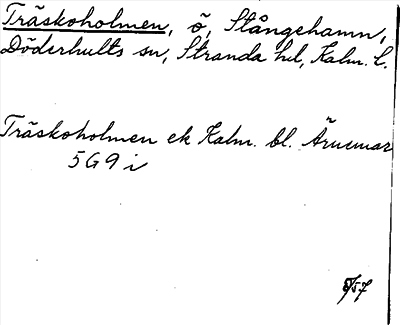 Träskoholmen, ö, Stångehamn,
Döderhults sn, Stranda hd, Kalm. l.
Träskoholmen ek Kalm. bl. Ärnemar
5G9i